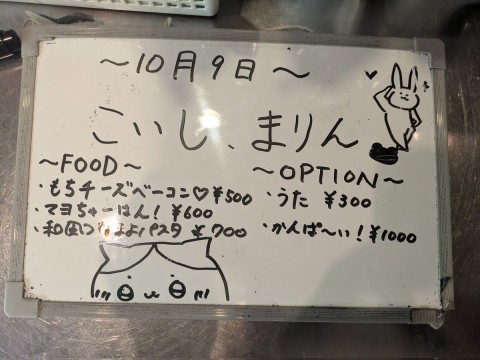 ～10月9日～
こいし、まりん
～FOOD～
・もちチーズベーコン♡¥500
・マヨちゃーはん！¥600
・和風ツナマヨパスタ ¥700
～OPTION～
・うた ¥300
・かんぱ～い！¥1000